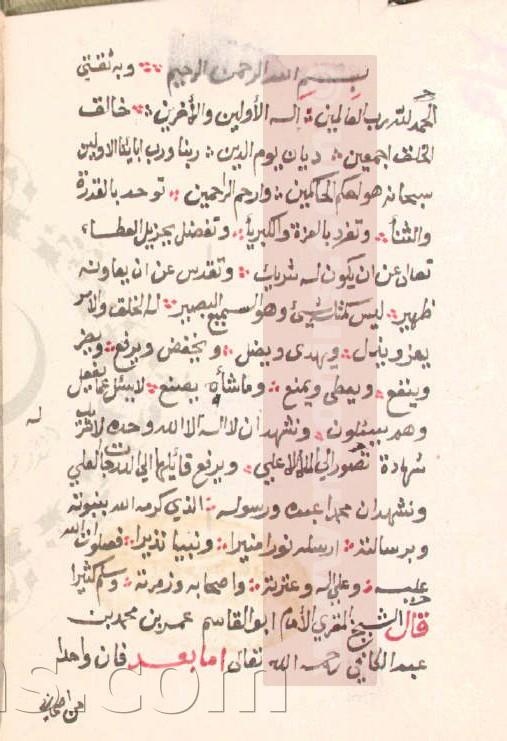 بسم الله الرحمن الرحيم وبه ثقتي
الحمد لله رب العالمين اله الأولين والأخرين خالق
الخلق اجمعين ديان يوم الدين ربنا ورب ابائنا الاولين
سبحانه هو احكم الحاكمين وارحم الراحمين توحد بالقدرة
والثنأ وتفرد بالعزة والكبريأ وتفضل بجزيل العطاء
تعالى عن ان يكون له شريك وتقدس عن ان يعاونه
ظهير ليس كمثله شيئ وهو السميع البصير له الخلق والامر
يعز ويذل ويهدى ويضل ويخفض ويرفع ويضر
وينفع ويعطى ويمنع وما شأه يصنع لا يسئل عما يفعل
وهم يسئلون ونشهد ان لا اله الا الله وحده لا شريك
له
شهادة الى الملأ الاعلى ويرفع قائلها الى الدرجات العلى
ونشهد ان محمدا عبده ورسوله الذي كرمه الله بنبوته
وبرسالته ارسله نورا منيرا ونبيا نذيرا فصلوات الله
عليه وعلى اله وعترته واصحابه وزمرته وسلم كثيرا
قال الشيخ المقري الأمام ابو القاسم عمر بن محمد بن
عبد الكافي رحمه الله تعالى اما بعد فان واحدا
من
ns.com